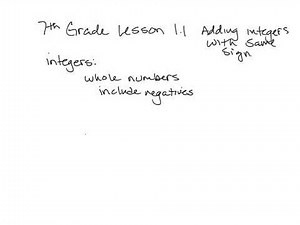 7th Grade Lesson 1.1 Adding integers
with same
sign
integers:
whole numbers
include negatives